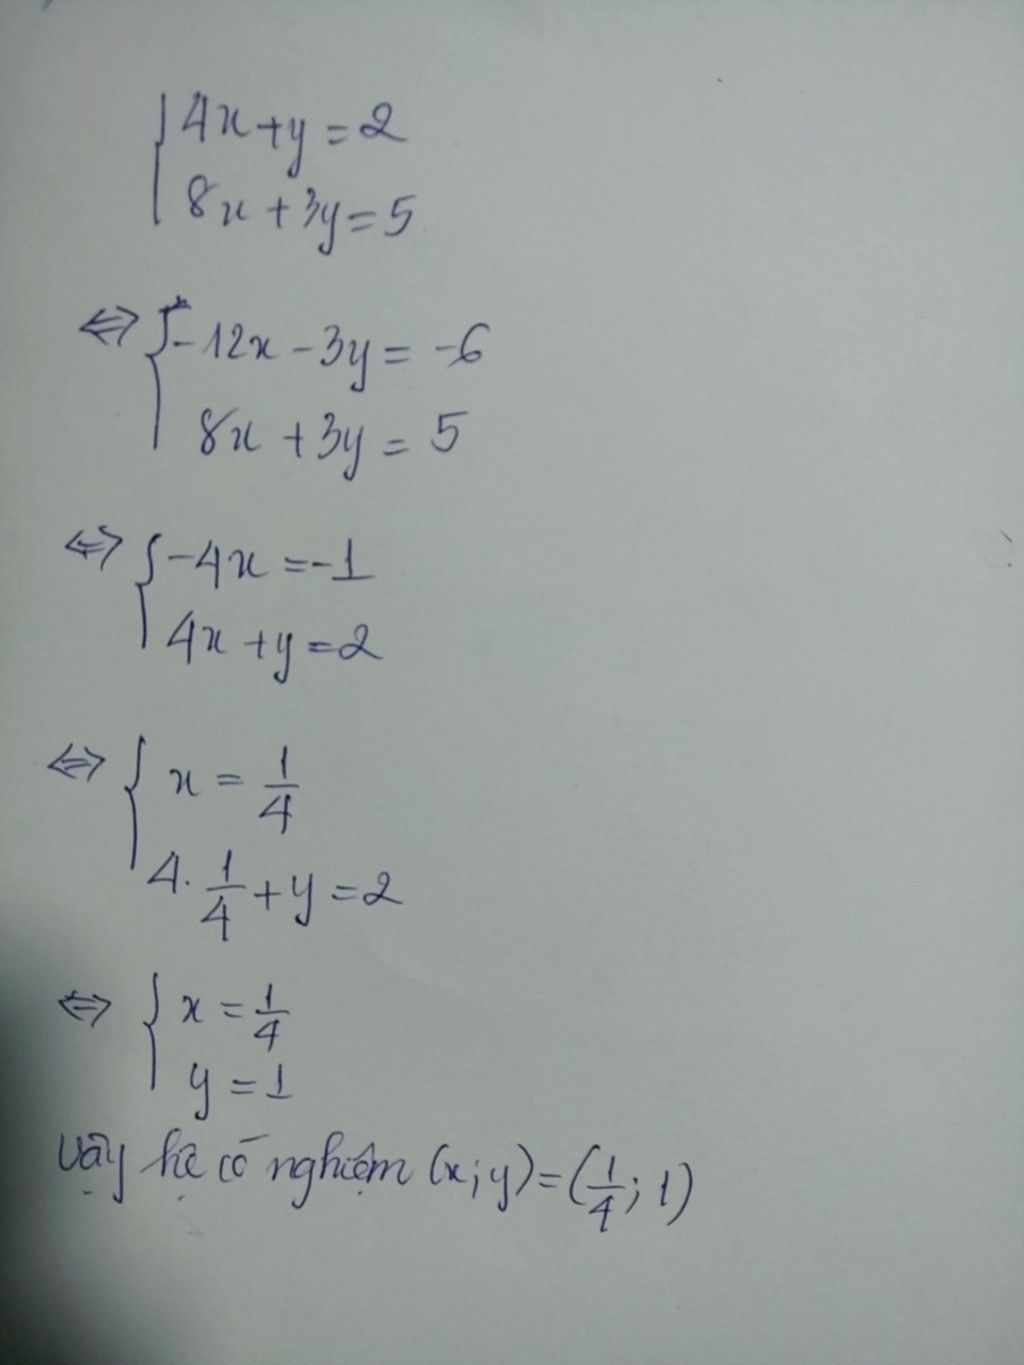 { 4x + y = 2
8x + 3y = 5
⇔ { -12x - 3y = -6
8x + 3y = 5
⇔ { -4x = -1
4x + y = 2
⇔ { x = 1/4
4. 1/4 + y = 2
⇔ { x = 1/4
y = 1
Vậy hệ có nghiệm (x; y) = (1/4; 1)